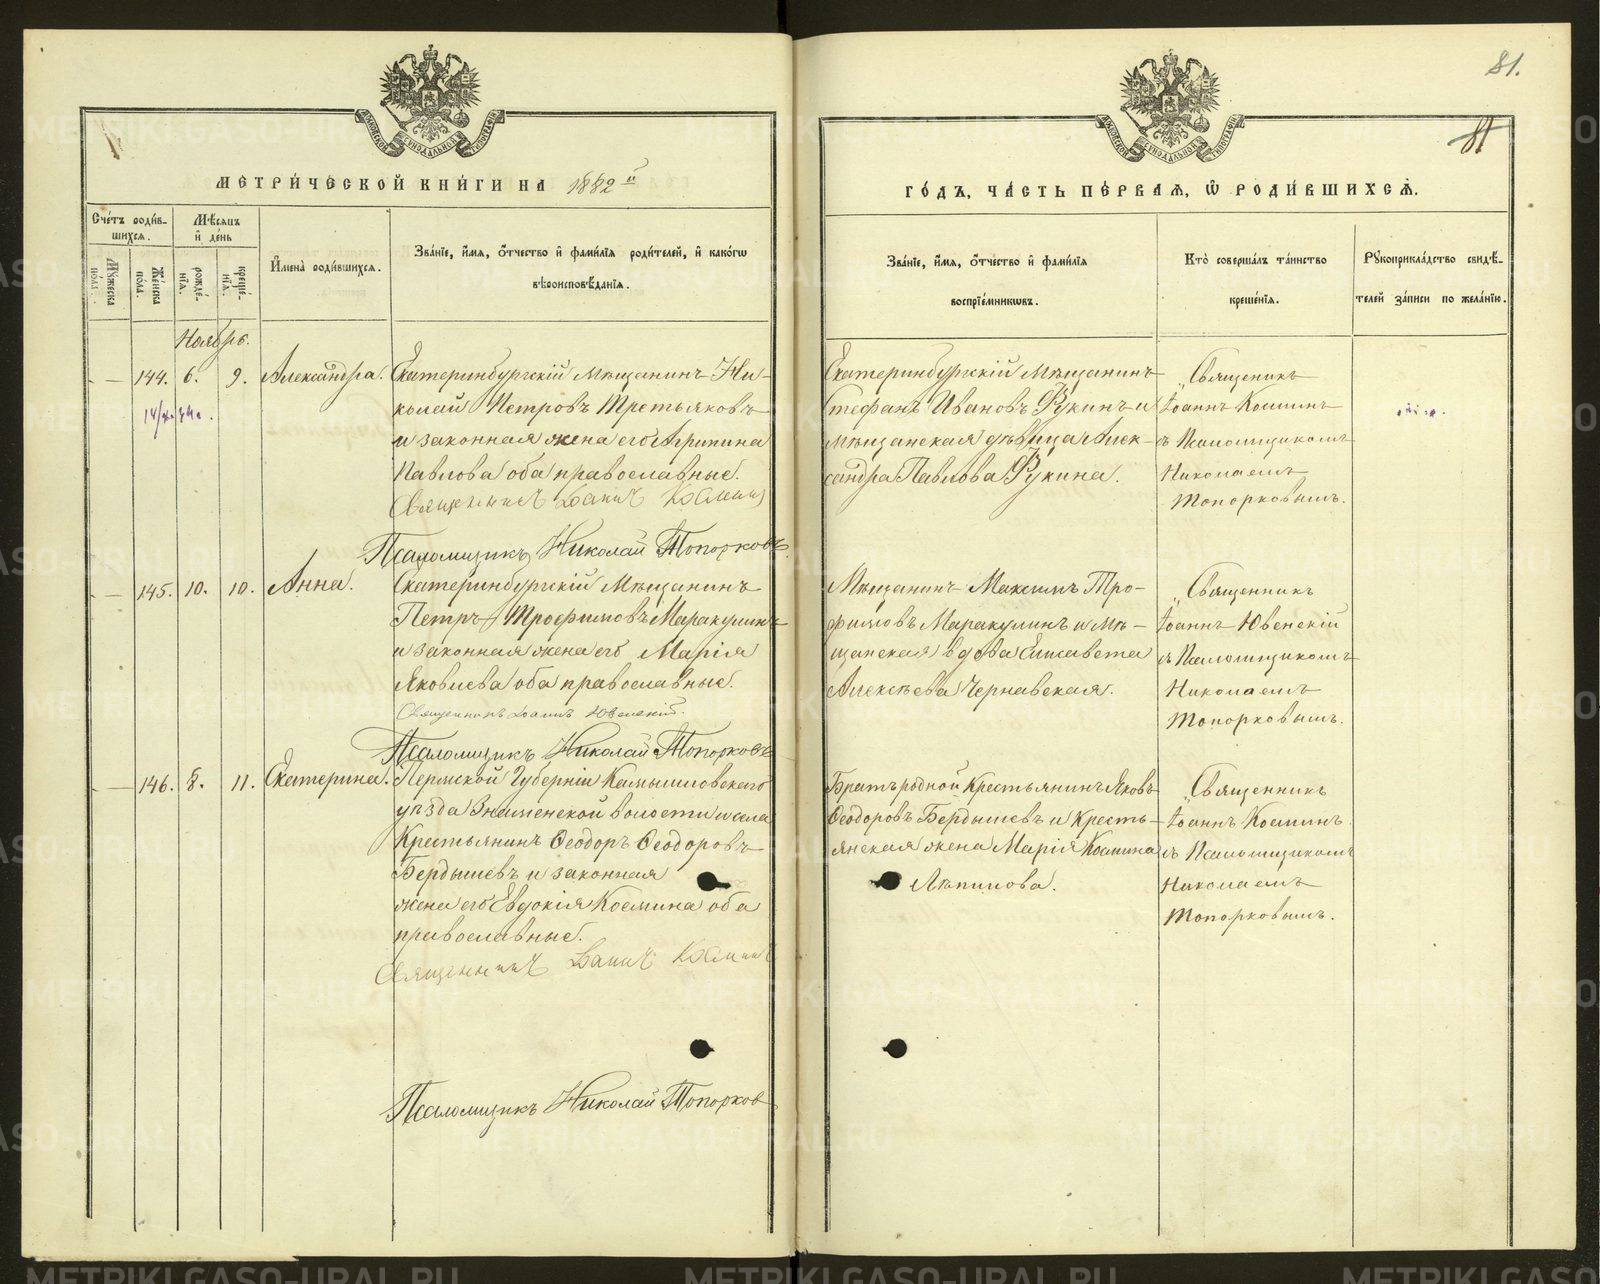 81.
81
МЕТРИЧЕСКОЙ КНИГИ НА 1882й
ГОДЪ, ЧАСТЬ ПЕРВАЯ, Ѡ РОДИВШИХСЯ.
Счетъ родив-
шихся.
Мѣсяцъ
и день
Мужеска
пола.
Женска
пола.
рожде-
нія.
креще-
нія.
Имена родившихся.
Званіе, имя, отчество и фамилія родителей, и какогѡ
вѣроисповѣданія.
Званіе, имя, отчество и фамилія
воспріемниковъ.
Кто совершалъ таинство
крещенія.
Рукоприкладство свидѣ-
телей записи по желанію.
Ноябрь.
144. 6. 9. Александра.
Екатеринбургскій Мѣщанинъ Ни-
колай Петровъ Третьяковъ
и законная жена его Агрипина
Павлова оба православные.
Священникъ Іоаннъ Косминъ
Псаломщикъ Николай Топорковъ.
Екатеринбургскій Мѣщанинъ
Стефанъ Ивановъ Фукинъ и
мѣщанская дѣвица Алек-
сандра Павлова Фукина.
Священникъ
Іоаннъ Косминъ
съ Псаломщикомъ
Николаемъ
Топорковымъ.
145. 10. 10. Анна.
Екатеринбургскій Мѣщанинъ
Петръ Трофимовъ Маракулинъ
и законная жена его Марія
Яковлева оба православные.
Священникъ Іоаннъ Ювенскій.
Псаломщикъ Николай Топорковъ
Мѣщанинъ Максимъ Тро-
фимовъ Маракулинъ и мѣ-
щанская вдова Елисавета
Алексѣева Чернавская.
Священникъ
Іоаннъ Ювенскій
съ Псаломщикомъ
Николаемъ
Топорковымъ.
146. 8. 11. Екатерина.
Пермской Губерніи Камышловскаго
уѣзда Знаменской волости и села
Крестьянинъ Ѳеодоръ Ѳеодоровъ
Бердышевъ и законная
жена его Евдокія Космина оба
православные.
Священникъ Іоаннъ Косминъ
Псаломщикъ Николай Топорков
Братъ родной Крестьянинъ Яковъ
Ѳеодоровъ Бердышевъ и Кресть-
янская жена Марія Космина
Ляпинова.
Священникъ
Іоаннъ Косминъ
съ Псаломщикомъ
Николаемъ
Топорковымъ.
METRIKI.GASO-URAL.RU